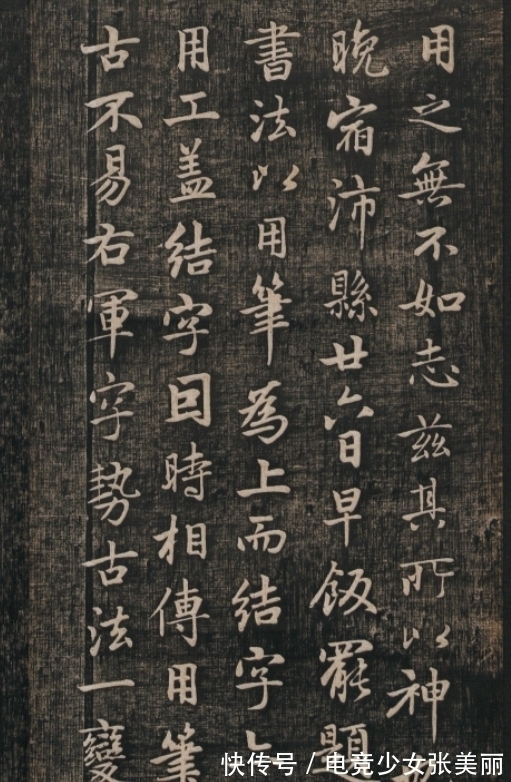 用之無不如志茲其所以神
晚宿沛縣廿六日早飯罷題
書法以用筆為上而結字
用工盖結字因時相傳用筆
古不易右軍字勢古法一變
快传号 / 电竞少女张美丽